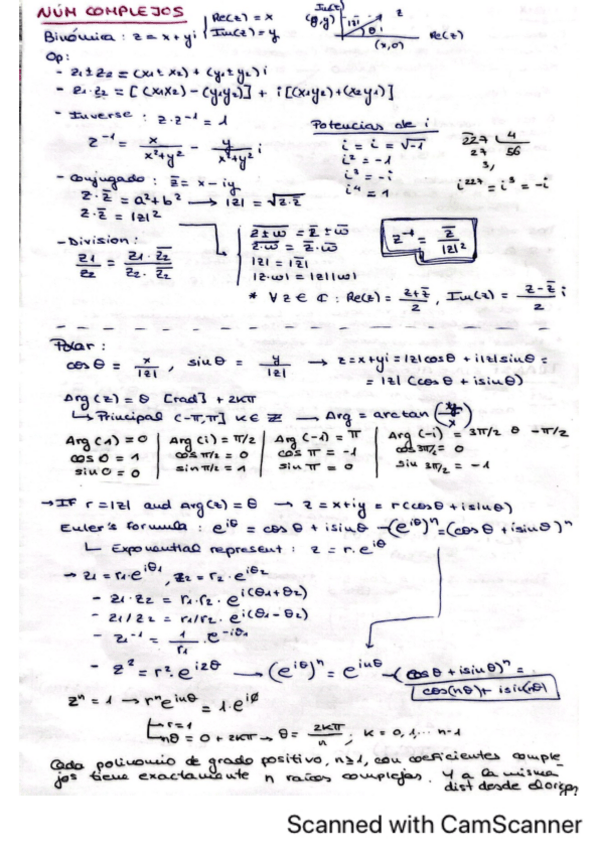 NÚM COMPLEJOS
Binómica : z = x + yi { Re(z) = x
Im(z) = y
Im(z)
(0,y) |z| z
θ Re(z)
(x,0)
Op:
- z₁ ± z₂ = (x₁ ± x₂) + (y₁ ± y₂) i
- z₁ · z₂ = [(x₁x₂) - (y₁y₂)] + i [(x₁y₂) + (x₂y₁)]
- Inverse : z · z⁻¹ = 1
z⁻¹ = x/(x²+y²) - y/(x²+y²) i
Potencias de i
i = i = √-1
i² = -1
i³ = -i
i⁴ = 1
227 | 4
27 56
3,
i²²⁷ = i³ = -i
- Conjugado : z̅ = x - iy
z · z̅ = a² + b² → |z| = √(z · z̅)
z · z̅ = |z|²
- Division :
z₁/z₂ = (z₁ · z̅₂)/(z₂ · z̅₂)
z̅±̅w̅ = z̅ ± w̅
z̅·̅w̅ = z̅ · w̅
|z| = |z̅|
|z · w| = |z||w|
z⁻¹ = z̅/|z|²
* ∀ z ∈ ℂ : Re(z) = (z + z̅)/2 , Im(z) = (z - z̅)/2 i
Polar :
cos θ = x/|z| , sin θ = y/|z| → z = x + yi = |z| cos θ + i|z| sin θ =
= |z| (cos θ + i sin θ)
Arg(z) = θ [rad] + 2kπ
↳ Principal (-π, π] k ∈ ℤ → Arg = arctan (y/x)
Arg(1) = 0 | Arg(i) = π/2 | Arg(-1) = π | Arg(-i) = 3π/2 o -π/2
cos 0 = 1 | cos π/2 = 0 | cos π = -1 | cos 3π/2 = 0
sin 0 = 0 | sin π/2 = 1 | sin π = 0 | sin 3π/2 = -1
→ IF r = |z| and Arg(z) = θ → z = x + iy = r(cos θ + i sin θ)
Euler's formula : e^{iθ} = cos θ + i sin θ → (e^{iθ})ⁿ = (cos θ + i sin θ)ⁿ
↳ Exponential represent : z = r · e^{iθ}
→ z₁ = r₁ · e^{iθ₁} , z₂ = r₂ · e^{iθ₂}
- z₁ · z₂ = r₁ · r₂ · e^{i(θ₁+θ₂)}
- z₁/z₂ = r₁/r₂ · e^{i(θ₁-θ₂)}
- z₁⁻¹ = 1/r₁ · e^{-iθ₁}
- z² = r² · e^{i2θ} → (e^{iθ})ⁿ = e^{inθ} → (cos θ + i sin θ)ⁿ =
cos(nθ) + i sin(nθ)
zⁿ = 1 → rⁿ e^{inθ} = 1 · e^{i0}
↳ r = 1
↳ nθ = 0 + 2kπ → θ = 2kπ/n ; k = 0, 1, ... n-1
Cada polinomio de grado positivo, n ≥ 1, con coeficientes comple-
jos tiene exactamente n raíces complejas. Y a la misma
dist desde el origen
Scanned with CamScanner